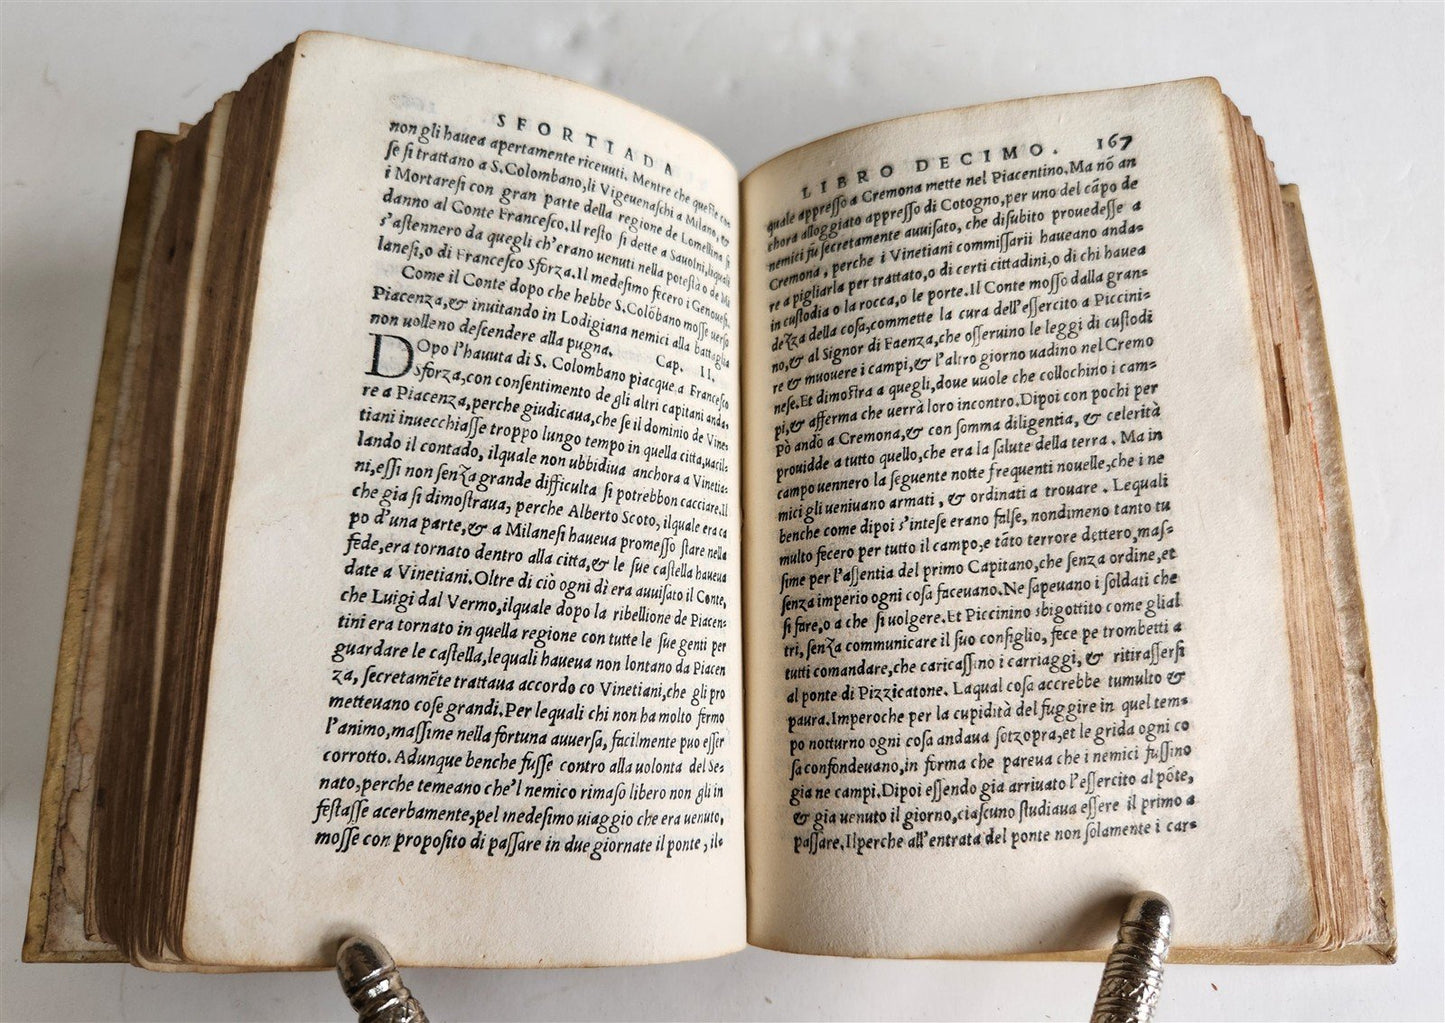 SFORTIADA
non gli hauea apertamente riceuuti. Mentre che queste cose
se si trattano a S.Colombano,li Vigeuenaschi a Milano, &
i Mortaresi con gran parte della regione de Lomellina si
danno al Conte Francesco.Il resto si dette a Sauoini, liquali
s'astennero da quegli ch'erano uenuti nella potestà o de Mi
lanesi,o di Francesco Sforza.Il medesimo fecero i Genouesi.
Come il Conte dopo che hebbe S.Colōbano mosse uerso
Piacenza,& inuitando in Lodigiana nemici alla battaglia
non uolleno descendere alla pugna. Cap. II.
DOpo l'hauuta di S. Colombano piacque a Francesco
Sforza,con consentimento de gli altri capitani anda-
re a Piacenza,perche giudicaua,che se il dominio de Vine-
tiani inuecchiasse troppo lungo tempo in quella citta,uacil-
lando il contado, ilquale non ubbidiua anchora a Vinetia-
ni,essi non senza grande difficulta si potrebbon cacciare.Il
che gia si dimostraua, perche Alberto Scoto, ilquale era ca
po d'una parte,& a Milanesi haueua promesso stare nella
fede,era tornato dentro alla citta,& le sue castella haueua
date a Vinetiani.Oltre di ciò ogni dì era auuisato il Conte,
che Luigi dal Vermo,ilquale dopo la ribellione de Piacen-
tini era tornato in quella regione con tutte le sue genti per
guardare le castella,lequali haueua non lontano da Piacen
za, secretamēte trattaua accordo co Vinetiani,che gli pro
metteuano cose grandi.Per lequali chi non ha molto fermo
l'animo,massime nella fortuna auuersa, facilmente puo esser
corrotto. Adunque benche fusse contro alla uolonta del Se-
nato,perche temeano che'l nemico rimaso libero non gli in
festasse acerbamente,pel medesimo uiaggio che era uenuto,
mosse con proposito di passare in due giornate il ponte, il-
LIBRO DECIMO. 167
quale appresso a Cremona mette nel Piacentino. Ma nō an
chora alloggiato appresso di Cotogno,per uno del cāpo de
nemici fu secretamente auuisato, che disubito prouedesse a
Cremona, perche i Vinetiani commissarii haueano anda-
re a pigliarla per trattato,o di certi cittadini,o di chi hauea
in custodia o la rocca,o le porte.Il Conte mosso dalla gran-
dezza della cosa,commette la cura dell'essercito a Piccini-
no,& al Signor di Faenza,che osseruino le leggi di custodi
re & muouere i campi,& l'altro giorno uadino nel Cremo
nese.Et dimostra a quegli,doue uuole che collochino i cam-
pi,& afferma che uerrà loro incontro.Dipoi con pochi per
Pò andò a Cremona,& con somma diligentia, & celerità
prouidde a tutto quello,che era la salute della terra . Ma in
campo uennero la seguente notte frequenti nouelle,che i ne
mici gli ueniuano armati , & ordinati a trouare . Lequali
benche come dipoi s'intese erano false, nondimeno tanto tu
multo fecero per tutto il campo,e tāto terrore dettero,mas-
sime per l'assentia del primo Capitano,che senza ordine,et
senza imperio ogni cosa faceuano.Ne sapeuano i soldati che
si fare,o a che si uolgere.Et Piccinino sbigottito come glial
tri, senza communicare il suo consiglio, fece pe trombetti a
tutti comandare,che caricassino i carriaggi, & ritirassersi
al ponte di Pizzicatone. Laqual cosa accrebbe tumulto &
paura.Imperoche per la cupidità del fuggire in quel tem-
po notturno ogni cosa andaua sotzopra,et le grida ogni co
sa confondeuano,in forma che pareua che i nemici fussino
gia ne campi.Dipoi essendo gia arriuato l'essercito al pōte,
& gia uenuto il giorno,ciascuno studiaua essere il primo a
passare.Ilperche all'entrata del ponte non solamente i car-